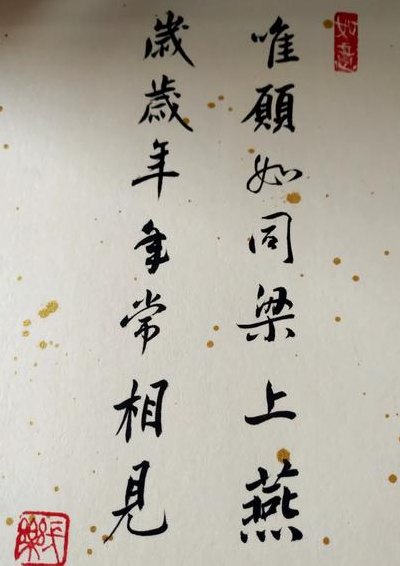 如意
唯願如同梁上燕
歲歲年年常相見
長樂